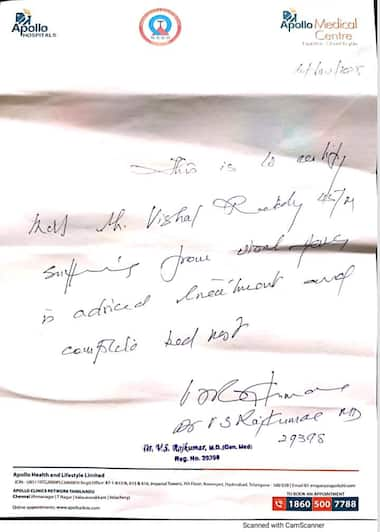 Apollo
HOSPITALS
Apollo Medical
Centre
Expertise. Closer to you.
This is to certify
that Mr. Vishal Reddy 45/M
suffering from viral fever
is adviced treatment and
complete bed rest
Dr V S Rajkumar MD
29398
Dr. V.S. Rajkumar, M.D.(Gen. Med)
Reg. No. 29398
Apollo Health and Lifestyle Limited
APOLLO CLINICS NETWORK TAMILNADU
Chennai
Online appointments: www.apolloclinic.com
TO BOOK AN APPOINTMENT
1860 500 7788
Scanned with CamScanner